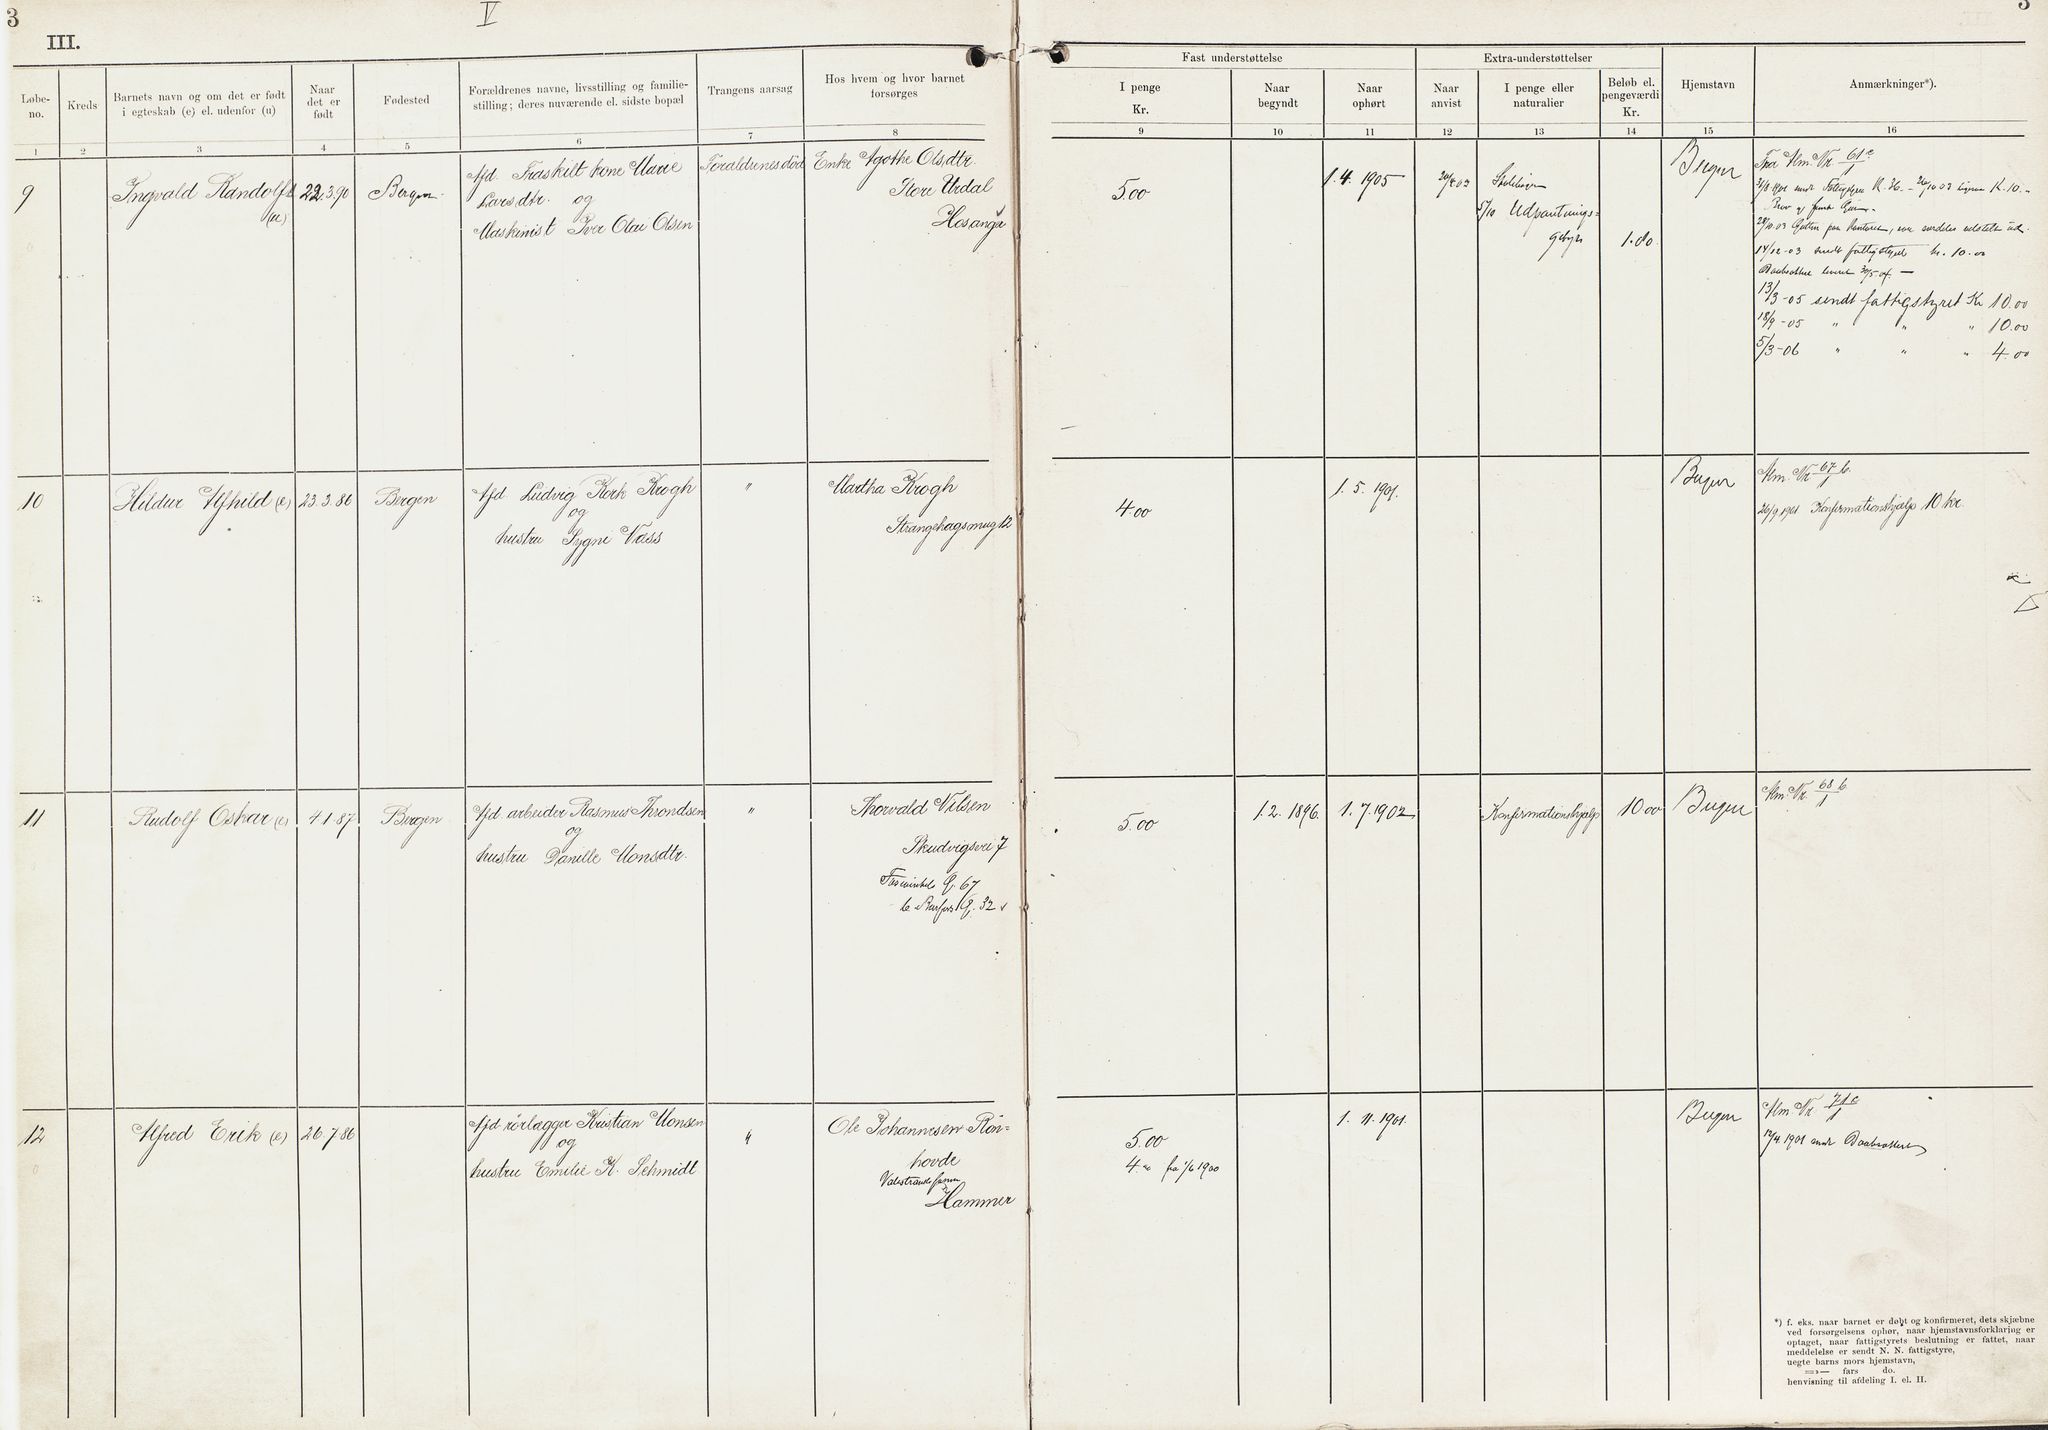 3
V
3
III.
Fast understøttelse
Extra-understøttelser
Løbe-
no.
Kreds
Barnets navn og om det er født
i egteskab (e) el. udenfor (u)
Naar
det er
født
Fødested
Forældrenes navne, livsstilling og familie-
stilling; deres nuværende el. sidste bopæl
Trangens aarsag
Hos hvem og hvor barnet
forsørges
I penge
Kr.
Naar
begyndt
Naar
ophørt
Naar
anvist
I penge eller
naturalier
Beløb el.
pengeværdi
Kr.
Hjemstavn
Anmærkninger*).
1 2 3 4 5 6 7 8 9 10 11 12 13 14 15 16
9
Ingvald Randolf
(u)
22.3.90
Bergen
Afd. Fraskilt kone Marie
Larsdtr. og
Maskinist Iver Olai Olsen
Forældrenes død
Enke Agathe Olsdtr.
Store Urdal
Hosanger
5.00
1.4. 1905
5/10 Udpantnings=
gebyr
1.80
Bergen
Alm. Nr. 61c/1
14/12-03 sendt fattigstyret kr. 10.00
13/3-05 sendt fattigstyret Kr 10.00
18/9-05 " " " 10.00
5/3-06 " " " 4.00
10
Hildur Alfhild (e)
23.3.86
Bergen
Afd. Ludvig Krogh
og
hustru Sygni Vass
"
Martha Krogh
Strangehagsmug 12
4.00
1.5. 1901.
Bergen
Alm. Nr. 67b/1
26/9 1901 Konfirmationshjælp 10 kr.
11
Rudolf Oskar (e)
4.1.87
Bergen
Afd. arbeider Rasmus Throndsen
og
hustru Danille Monsdtr.
"
Thorvald Nilsen
Skudvigsvei 7
5.00
1.2. 1896.
1.7.1902
Konfirmationshjælp
10.00
Bergen
Alm. Nr. 68b/1
12
Alfred Erik (e)
26.7.86
Afd. rørlægger Kristian Monsen
og
hustru Emilie K. Schmidt
"
Ole Johannesen Røn=
hovde
Hammer
5.00
4.00 fra 1/6 1900
1.11.1901
Bergen
Alm. Nr. 71c/1
12/4 1901 sendt Daabsattest
*) f. eks. naar barnet er døbt og konfirmeret, dets skjæbne
ved forsørgelsens ophør, naar hjemstavnsforklaring er
optaget, naar fattigstyrets beslutning er fattet, naar
meddelelse er sendt N. N. fattigstyre,
uegte barns mors hjemstavn,
—»— fars do.
henvisning til afdeling I. el. II.